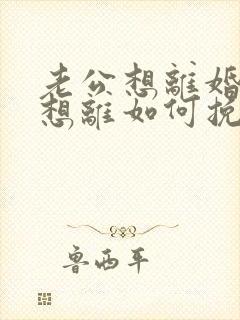 老公想離婚
想離如何挽
魯西平